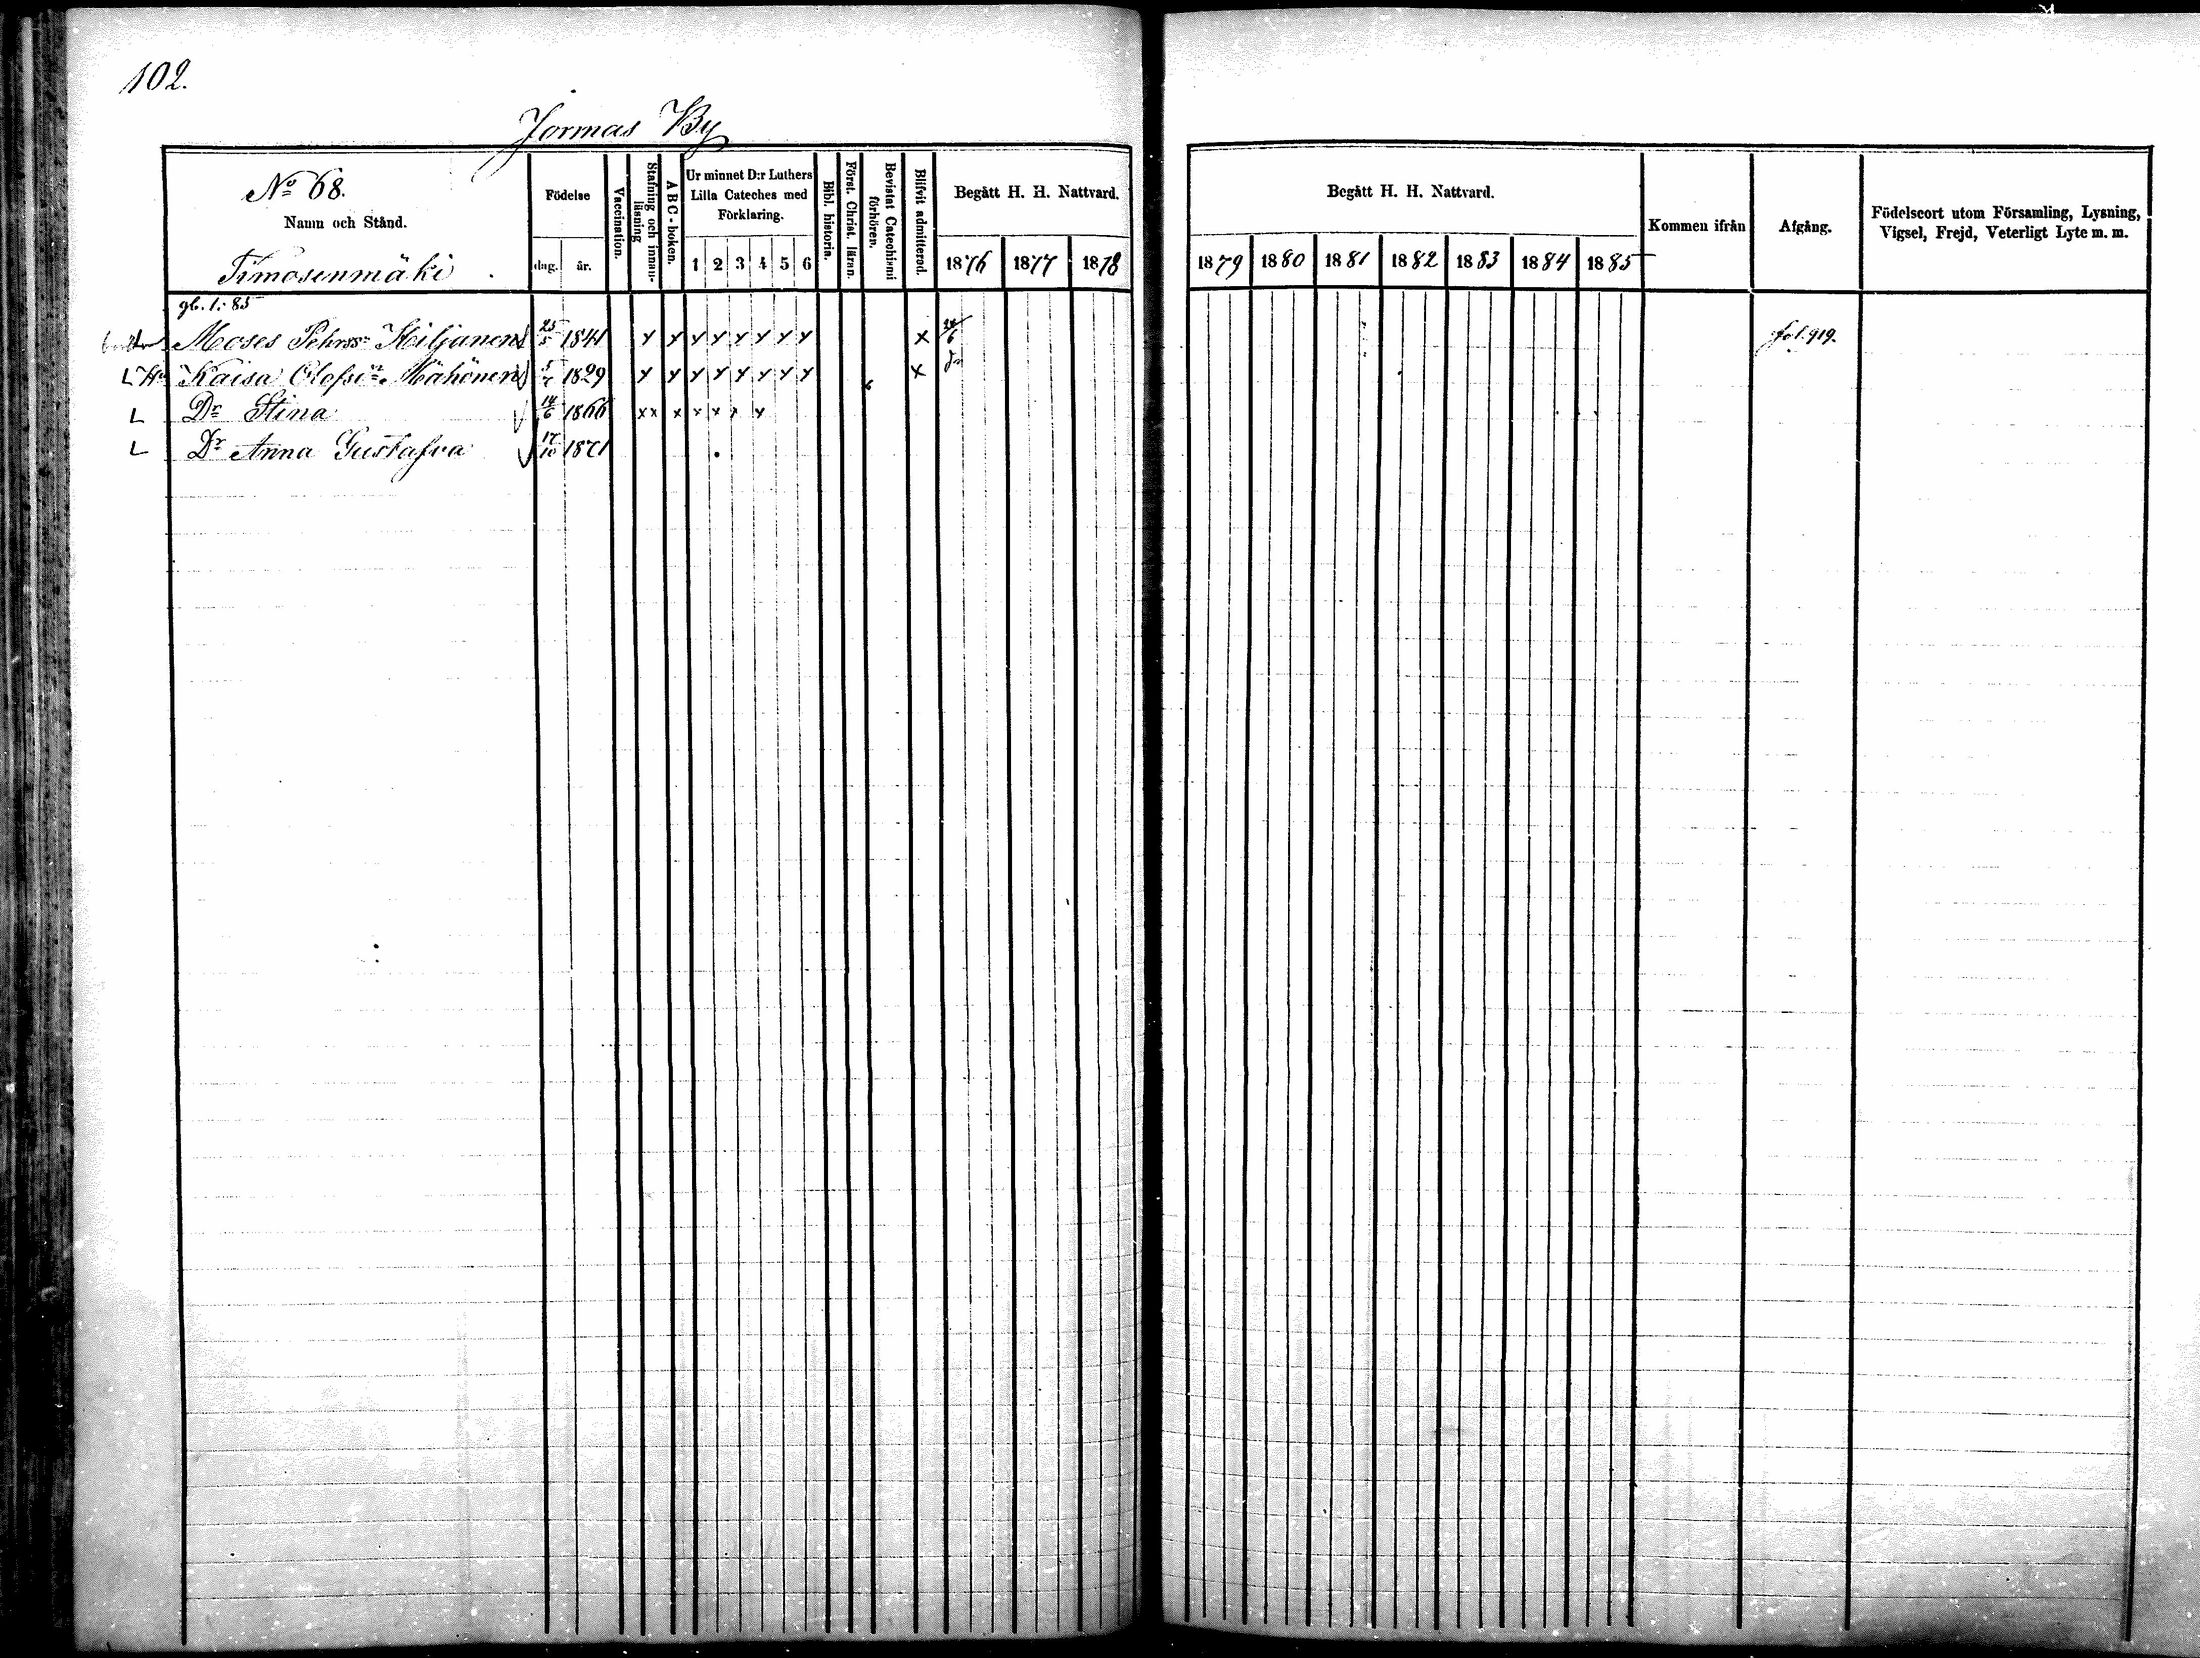 102.
Jormas By
No 68.
Namn och Stånd.
Timosenmäki
Födelse
dag. år.
Vaccination.
Stafning och innan-läsning
ABC-boken.
Ur minnet D:r Luthers
Lilla Cateches med
Förklaring.
1 2 3 4 5 6
Bibl. historia.
Först. Christ. läran.
Bevistat Catechismi
förhören.
Blifvit admitterad.
Begått H. H. Nattvard.
1876 1877 1878
Begått H. H. Nattvard.
1879 1880 1881 1882 1883 1884 1885
Kommen ifrån
Afgång.
Födelseort utom Församling, Lysning,
Vigsel, Frejd, Veterligt Lyte m. m.
gb. 1: 85
Moses Pehrss: Kiljunen 25/5 1841 x x x x x x x x x fol. 919.
L Hu Kaisa Olofsd:r Mähönen 1829 x x x x x x x x x
L Dr Stina 14/6 1866 x x x x x x x
L Dr Anna Gustafva 17/10 1871